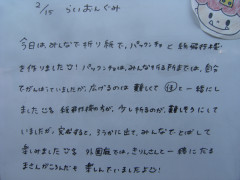 2/15 らいおんぐみ
今日は、みんなで折り紙で、パックンチョと紙飛行機
を作りました! パックンチョは、みんな折る所までは、自分
でがんばっていましたが、広げるのは難しくて 一緒に
しました。紙飛行機の方が、少し折るのが、難しそうにして
いましたが、完成すると、ろうかに出て、みんなでとばして
楽しみました 外国版では、きりんさんと一緒にだる
まさんがころんだを楽しんでいましたよ!